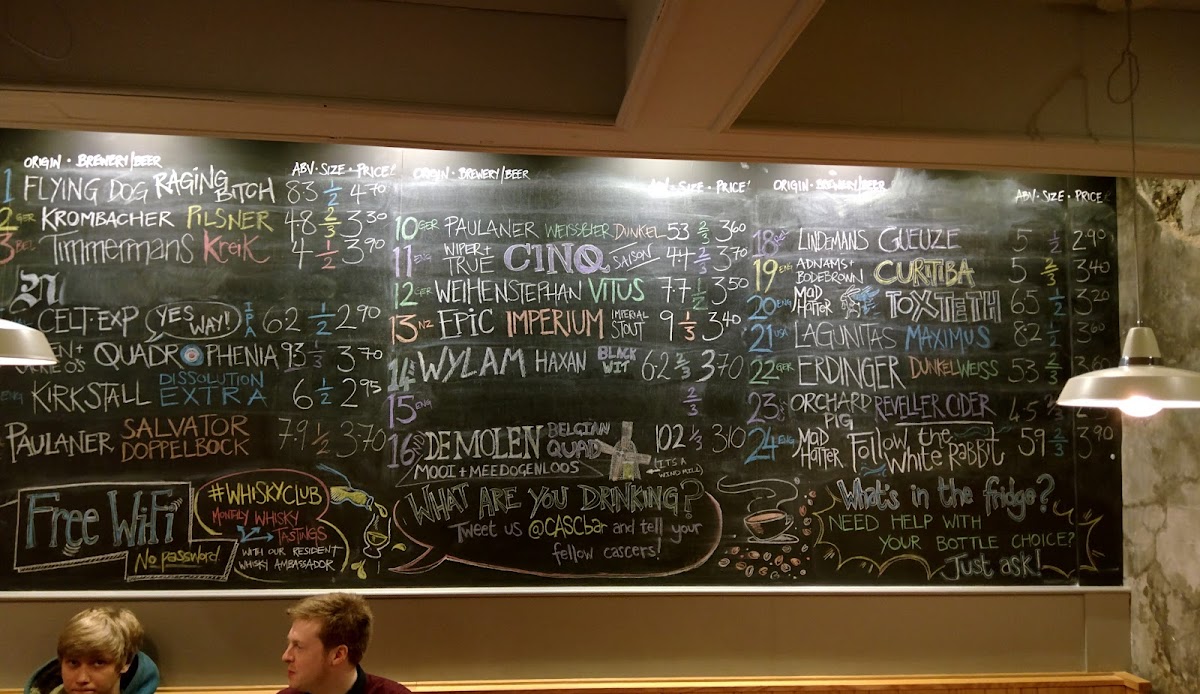 ORIGIN · BREWERY/BEER ABV · SIZE · PRICE!
1 FLYING DOG RAGING BITCH 83 1/2 4.70
2 GER KROMBACHER PILSNER 48 2/3 3.30
3 BEL Timmermans KreiK 4 1/2 3.90
CELT-EXP YES WAY! IPA 62 1/2 2.90
QUADROPHENIA 93 1/3 3.70
ENG KIRKSTALL DISSOLUTION EXTRA 6 1/2 2.95
PAULANER SALVATOR DOPPELBOCK 7.9 1/2 3.70
Free WiFi
No password
#WHISKYCLUB
MONTHLY WHISKY
TASTINGS
WITH OUR RESIDENT
WHISKY AMBASSADOR
ORIGIN · BREWERY/BEER ABV · SIZE · PRICE!
10 GER PAULANER WEISSBIER DUNKEL 53 2/3 3.60
11 ENG WIPER + TRUE CINQ SAISON 44 2/3 3.70
12 GER WEIHENSTEPHAN VITUS 7.7 1/2 3.50
13 NZ EPIC IMPERIUM IMPERIAL STOUT 9 1/3 3.40
14 WYLAM HAXAN BLACK WIT 6.2 2/3 3.70
15 ENG 2/3
16 DE MOLEN BELGIAN QUAD 102 1/3 3.10
MOOI + MEEDOGENLOOS
IT'S A
WINDMILL
WHAT ARE YOU DRINKING?
Tweet us @CASCbar and tell your
fellow cascers!
ORIGIN · BREWERY/BEER ABV · SIZE · PRICE
18 LINDEMANS GUEUZE 5 1/2 2.90
19 ENG ADNAMS + BODEBROWN CURITIBA 5 2/3 3.40
20 ENG MAD HATTER TOXTETH 65 1/2 3.20
21 USA LAGUNITAS MAXIMUS 82 1/2 3.60
22 GER ERDINGER DUNKELWEISS 53 2/3
23 ORCHARD PIG REVELLER CIDER 4.5
24 ENG MAD HATTER Follow the White Rabbit 59 2/3 3.90
What's in the fridge?
NEED HELP WITH
YOUR BOTTLE CHOICE?
Just ask!